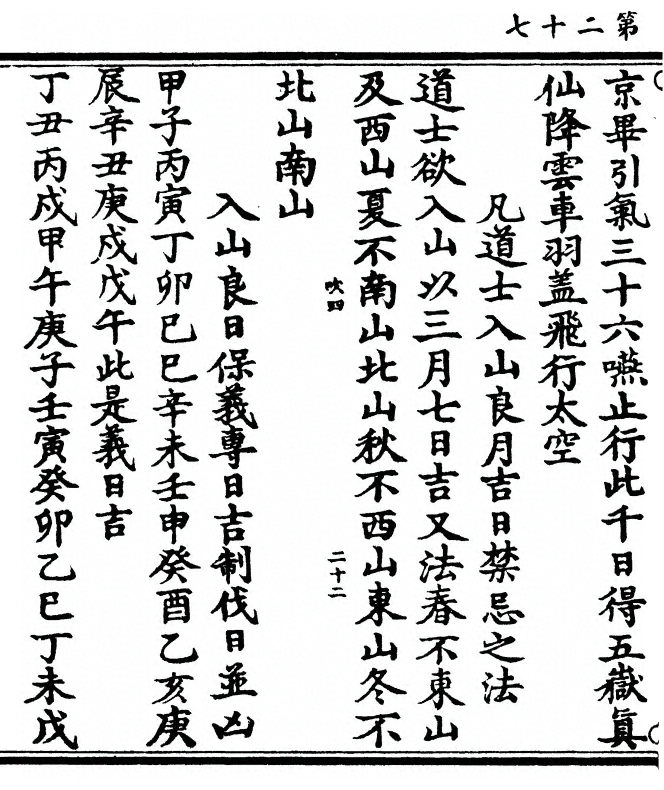 第二十七
京畢引氣三十六嚥止行此千日得五嶽眞
仙降雲車羽蓋飛行太空
凡道士入山良月吉日禁忌之法
道士欲入山以三月七日吉又法春不東山
及西山夏不南山北山秋不西山東山冬不
吹四
二十二
北山南山
入山良日保義專日吉制伐日並凶
甲子丙寅丁卯巳巳辛未壬申癸酉乙亥庚
辰辛丑庚戍戊午此是義日吉
丁丑丙戍甲午庚子壬寅癸卯乙巳丁未戊